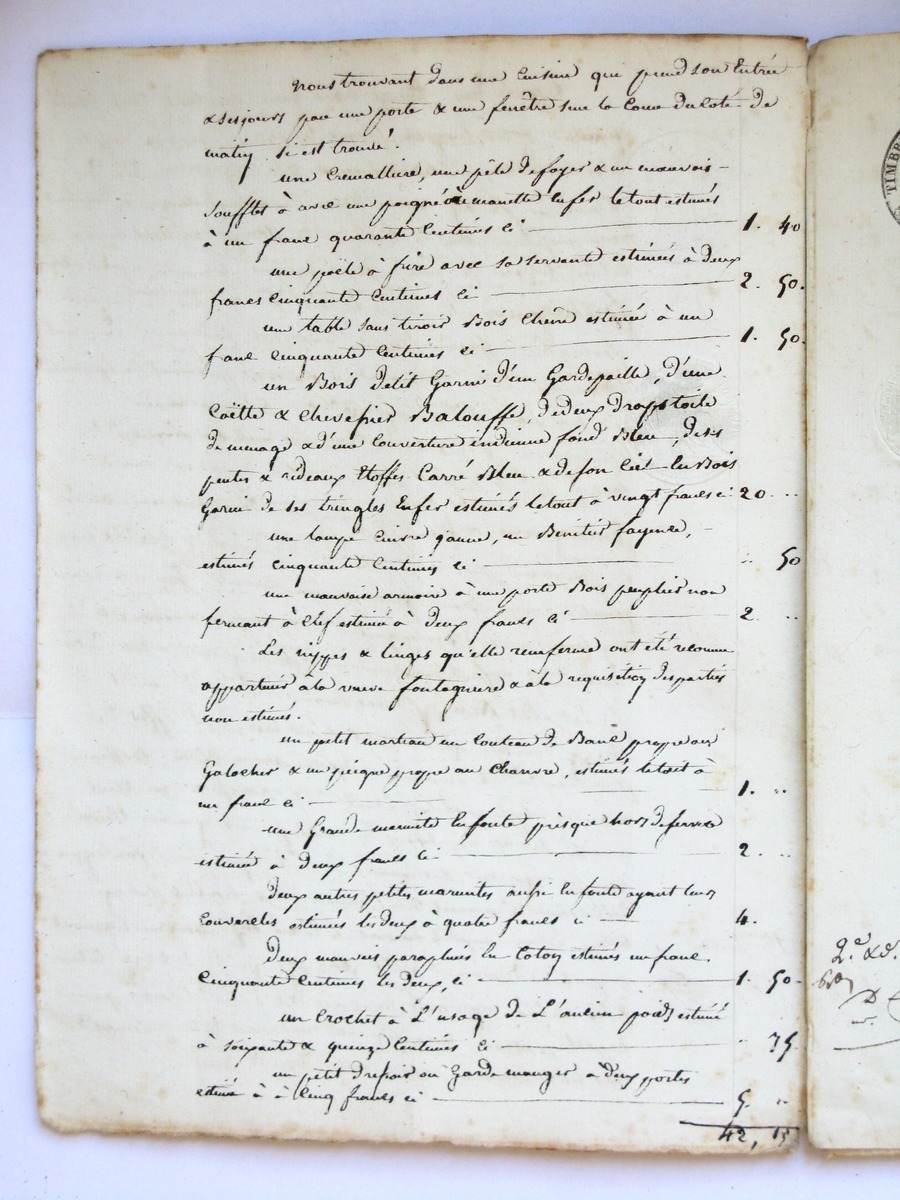 nous trouvant dans une Cuisine qui prend son Entrée
& ses jours par une porte & une fenêtre sur la Cour du Coté de
matin si est trouvé.
une Cremalliere, une pêle de foyer & un mauvais
Soufflet à avec une poigné ou manette en fer le tout estimés
à un franc quarante Centimes Ci — 1. 40
une poële à frire avec sa servante estimées à deux
francs Cinquante Centimes Ci — 2. 50.
une table sans tiroir Bois Chêne estimée à un
franc Cinquante Centimes Ci — 1. 50.
un Bois de lit Garni d'un Gardepaille, d'une
Coëtte & Cheve Balouffe, de deux Draps toile
de menage & d'une Couverture indienne fond Bleu, de ses
pentes & rideaux Etoffes Carré Bleu & de son Ciel En Bois
Garni de ses tringles En fer estimés le tout à vingt francs Ci 20 ..
une lampe Cuivre jaune, un Benitier fayence,
estimés Cinquante Centimes Ci — .. 50
une mauvaise armoire à une porte Bois peuplier non
fermant à Clef estimée à deux francs Ci — 2. ..
Les nippes & linges qu'elle renferme ont été reconnu
appartenir à la veuve & à la requisition des parties
non estimés.
un petit marteau un Couteau de Banc propre aux
Galoches & un peigne propre au Chanvre, estimés le tout à
un franc Ci — 1. ..
une Grande marmite En fonte presque hors de service
estimée à deux francs Ci — 2. ..
Deux autres petites marmites aussi En fonte ayant leurs
Couvercles estimées les deux à quatre francs Ci — 4.
Deux mauvais parapluies En Coton estimés un franc
Cinquante Centimes les deux, Ci — 1. 50.
un Crochet à L'usage de L'ancien poids estimé
à soixante & quinze Centimes Ci — .. 75.
un petit dressoir ou Garde manger à deux portes
estimé à à Cinq francs Ci — 5. ..
42, 15
TIMBR
2e.